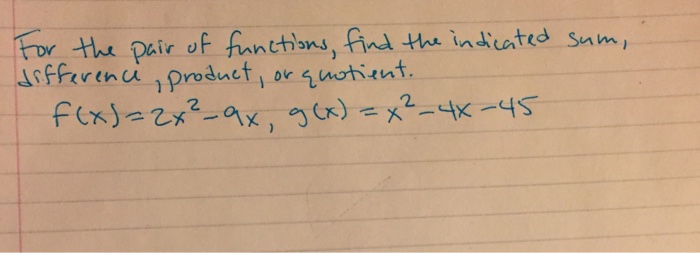 For the pair of functions, find the indicated sum,
difference, product, or quotient.
f(x)=2x²-9x, g(x)=x²-4x-45